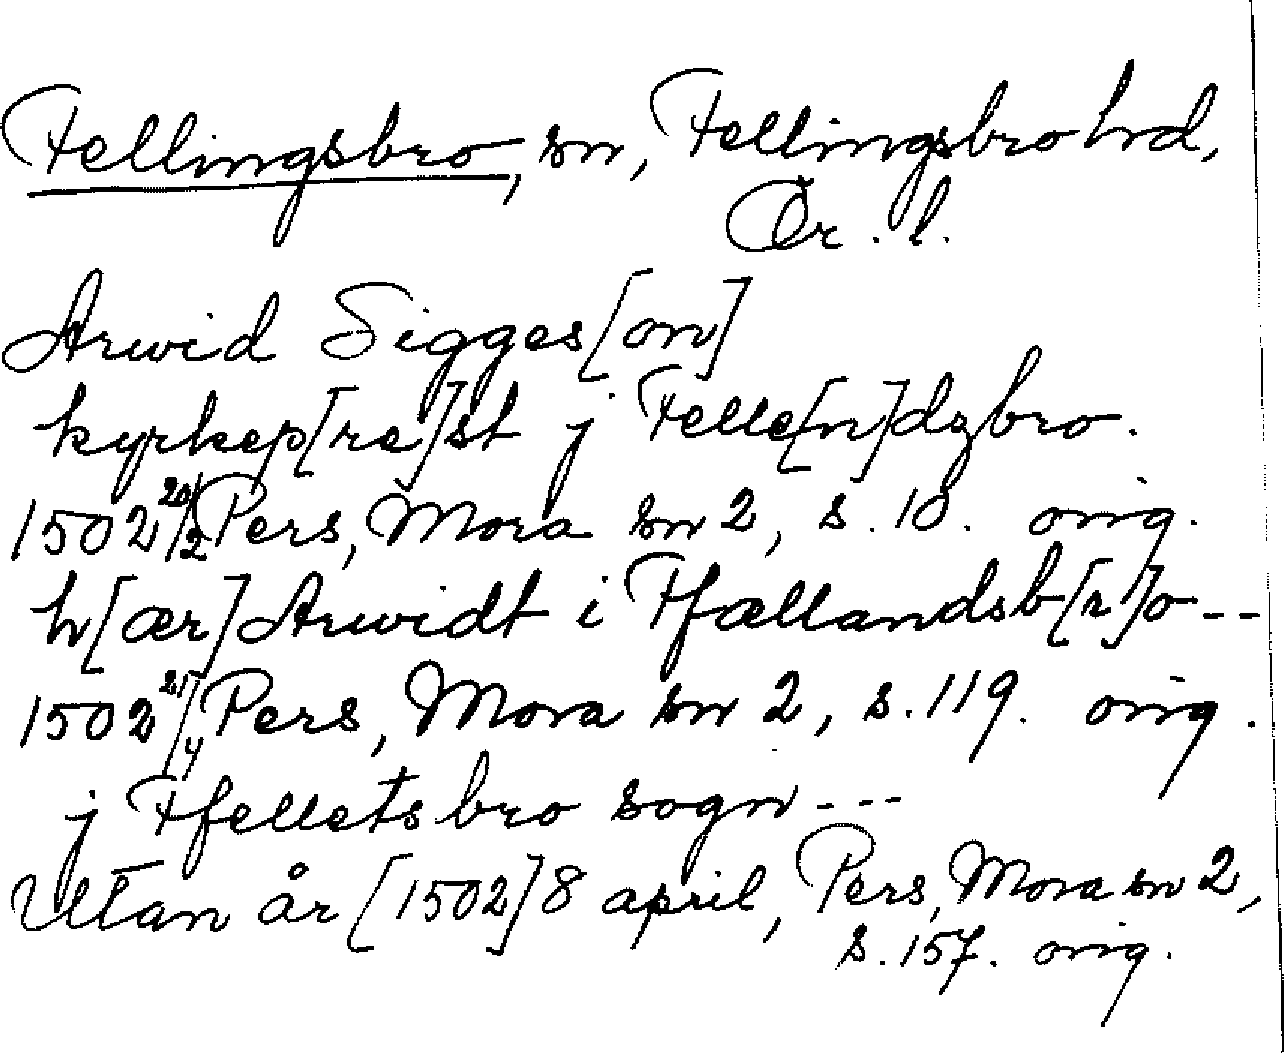 Fellingsbro, sn, Fellingsbro hd,
Ör. l.
Arwid Sigges[on]
kyrkep[re]st j Felle[n]dzbro.
1502 20/2 Pers, Mora sn 2, s. 10. orig.
h[ær] Arwidt i Ffællandsb[r]o---
1502 21/4 Pers, Mora sn 2, s. 119. orig.
j Ffelletsbro sogn---
Utan år [1502] 8 april, Pers, Mora sn 2,
s. 157. orig.